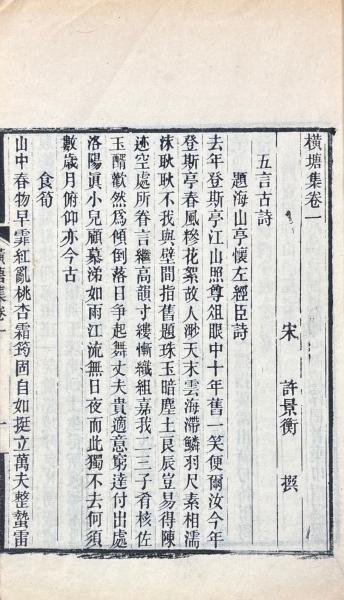 橫塘集卷一
宋 許景衡 撰
五言古詩
題海山亭懷左經臣詩
去年登斯亭江山照尊俎眼中十年舊一笑便爾汝今年
登斯亭春風糝花絮故人渺天末雲海滯鱗羽尺素相濡
沬耿耿不我與壁間指舊題珠玉暗塵土良辰豈易得陳
迹空處所眷言繼高韻寸縷慚纖組嘉我二三子肴核佐
玉醑歡然爲傾倒落日爭起舞丈夫貴適意窮達付出處
洛陽眞小兒顧慕涕如雨江流無日夜而此獨不去何須
數歲月俯仰亦今古
食筍
山中春物早霏紅亂桃杏霜筠固自如挺立萬夫整蟄雷
橫塘集卷一
一